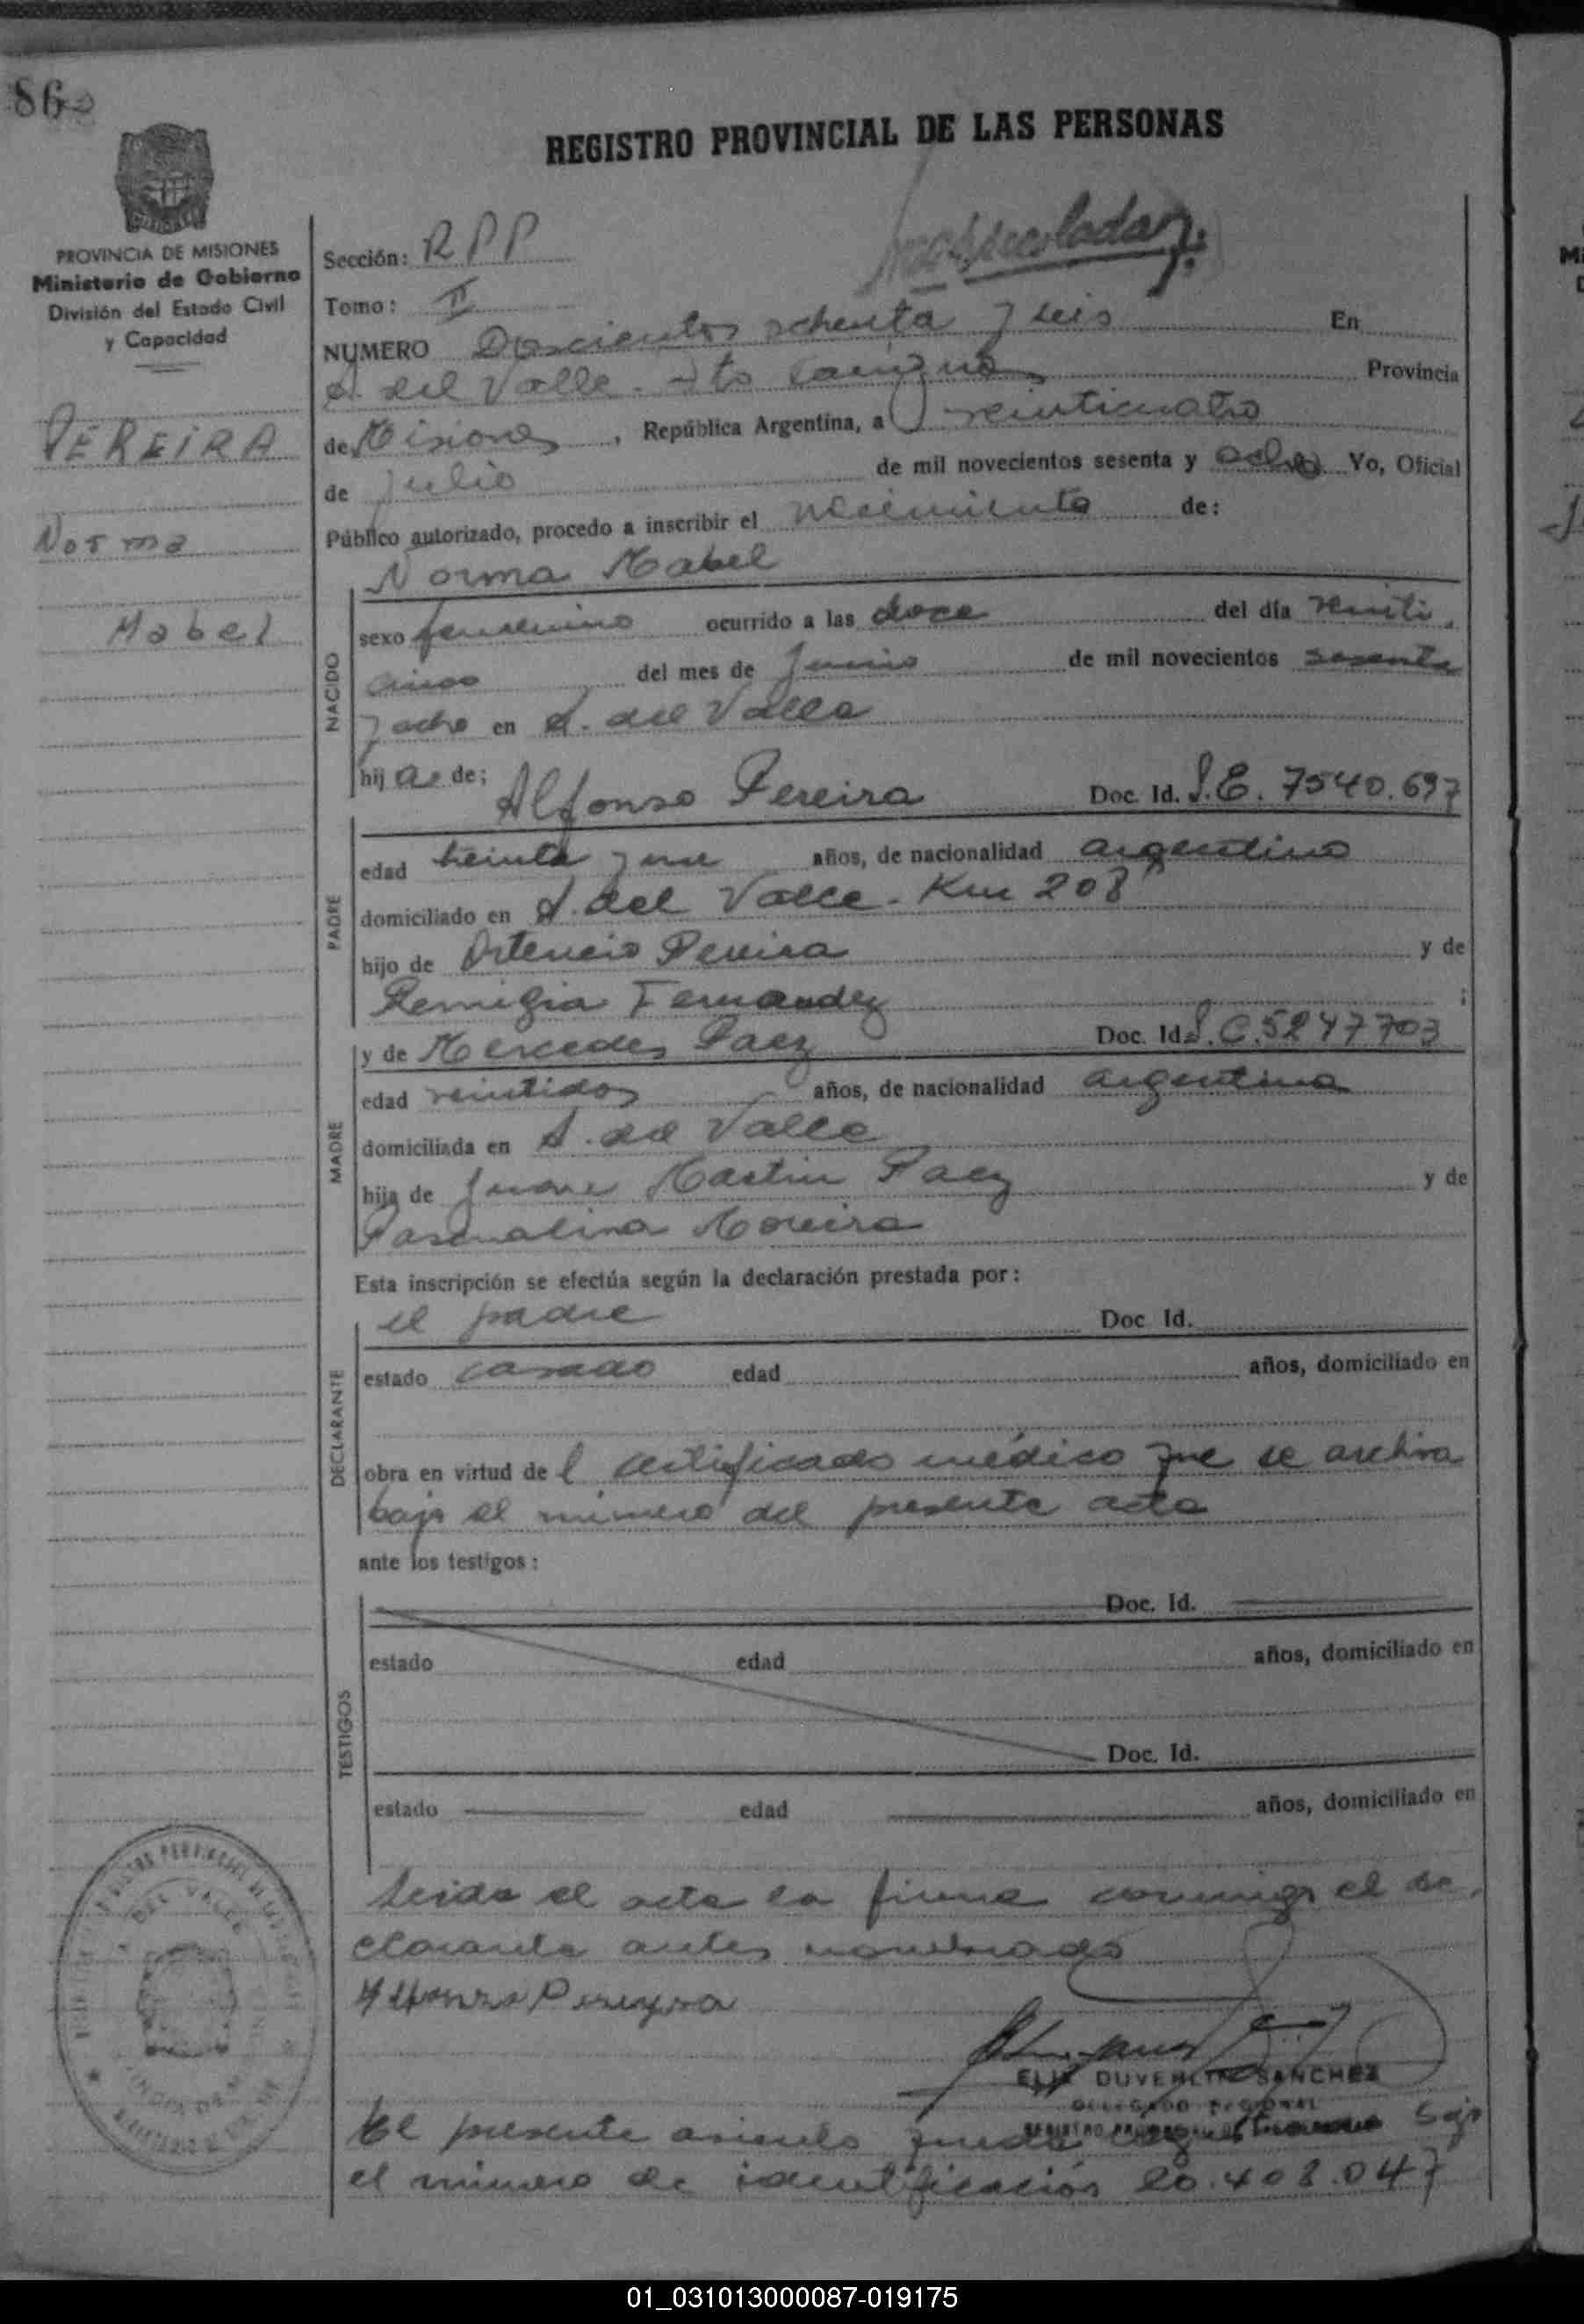 86
REGISTRO PROVINCIAL DE LAS PERSONAS
PROVINCIA DE MISIONES
Ministerio de Gobierno
División del Estado Civil
y Capacidad
PEREIRA
Norma
Mabel
Sección: RPP
Tomo: II
NUMERO Doscientos ochenta y seis En
A. del Valle. Dto Cainguás Provincia
de Misiones, República Argentina, a veinticuatro
de Julio de mil novecientos sesenta y ocho Yo, Oficial
Público autorizado, procedo a inscribir el nacimiento de:
Norma Mabel
NACIDO
sexo femenino ocurrido a las doce del día veinti
cinco del mes de Junio de mil novecientos sesenta
y ocho en A. del Valle
hija de: Alfonso Pereira Doc. Id. L.E. 7540.697
PADRE
edad treinta y un años, de nacionalidad argentino
domiciliado en A. del Valle - Km 208
hijo de Ortencio Pereira y de
Remigia Fernandez ;
y de Mercedes Paez Doc. Id. L.C. 5247703
MADRE
edad veintidos años, de nacionalidad argentina
domiciliada en A. del Valle
hija de Juan Martin Paez y de
Pascualina Moreira
Esta inscripción se efectúa según la declaración prestada por:
el padre Doc. Id.
DECLARANTE
estado casado edad años, domiciliado en
obra en virtud del certificado médico que se archiva
bajo el número del presente acta
ante los testigos:
Doc. Id.
TESTIGOS
estado edad años, domiciliado en
Doc. Id.
estado edad años, domiciliado en
Leida el acta la firma conmigo el de
clarante antes nombrado
Alfonso Pereyra
SANCHEZ
DELEGADO REGIONAL
El presente asiento queda bajo
el número de identificación 20.408.047
01_031013000087-019175